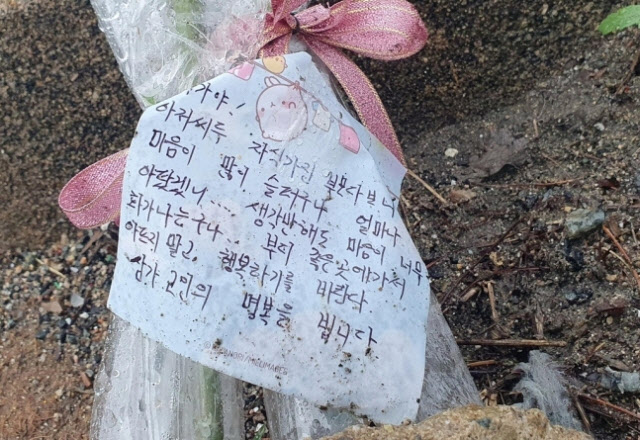 가야!
아저씨두 자식가진 부모다보니
마음이 많이 슬러구나 얼마나
아팟겟니.... 생각만해도 마음이 너무
화가나는구나... 부디 좋은곳에가서
아프지 말고, 행복하기를 바란다
삼가 고인의 명복을 빕니다